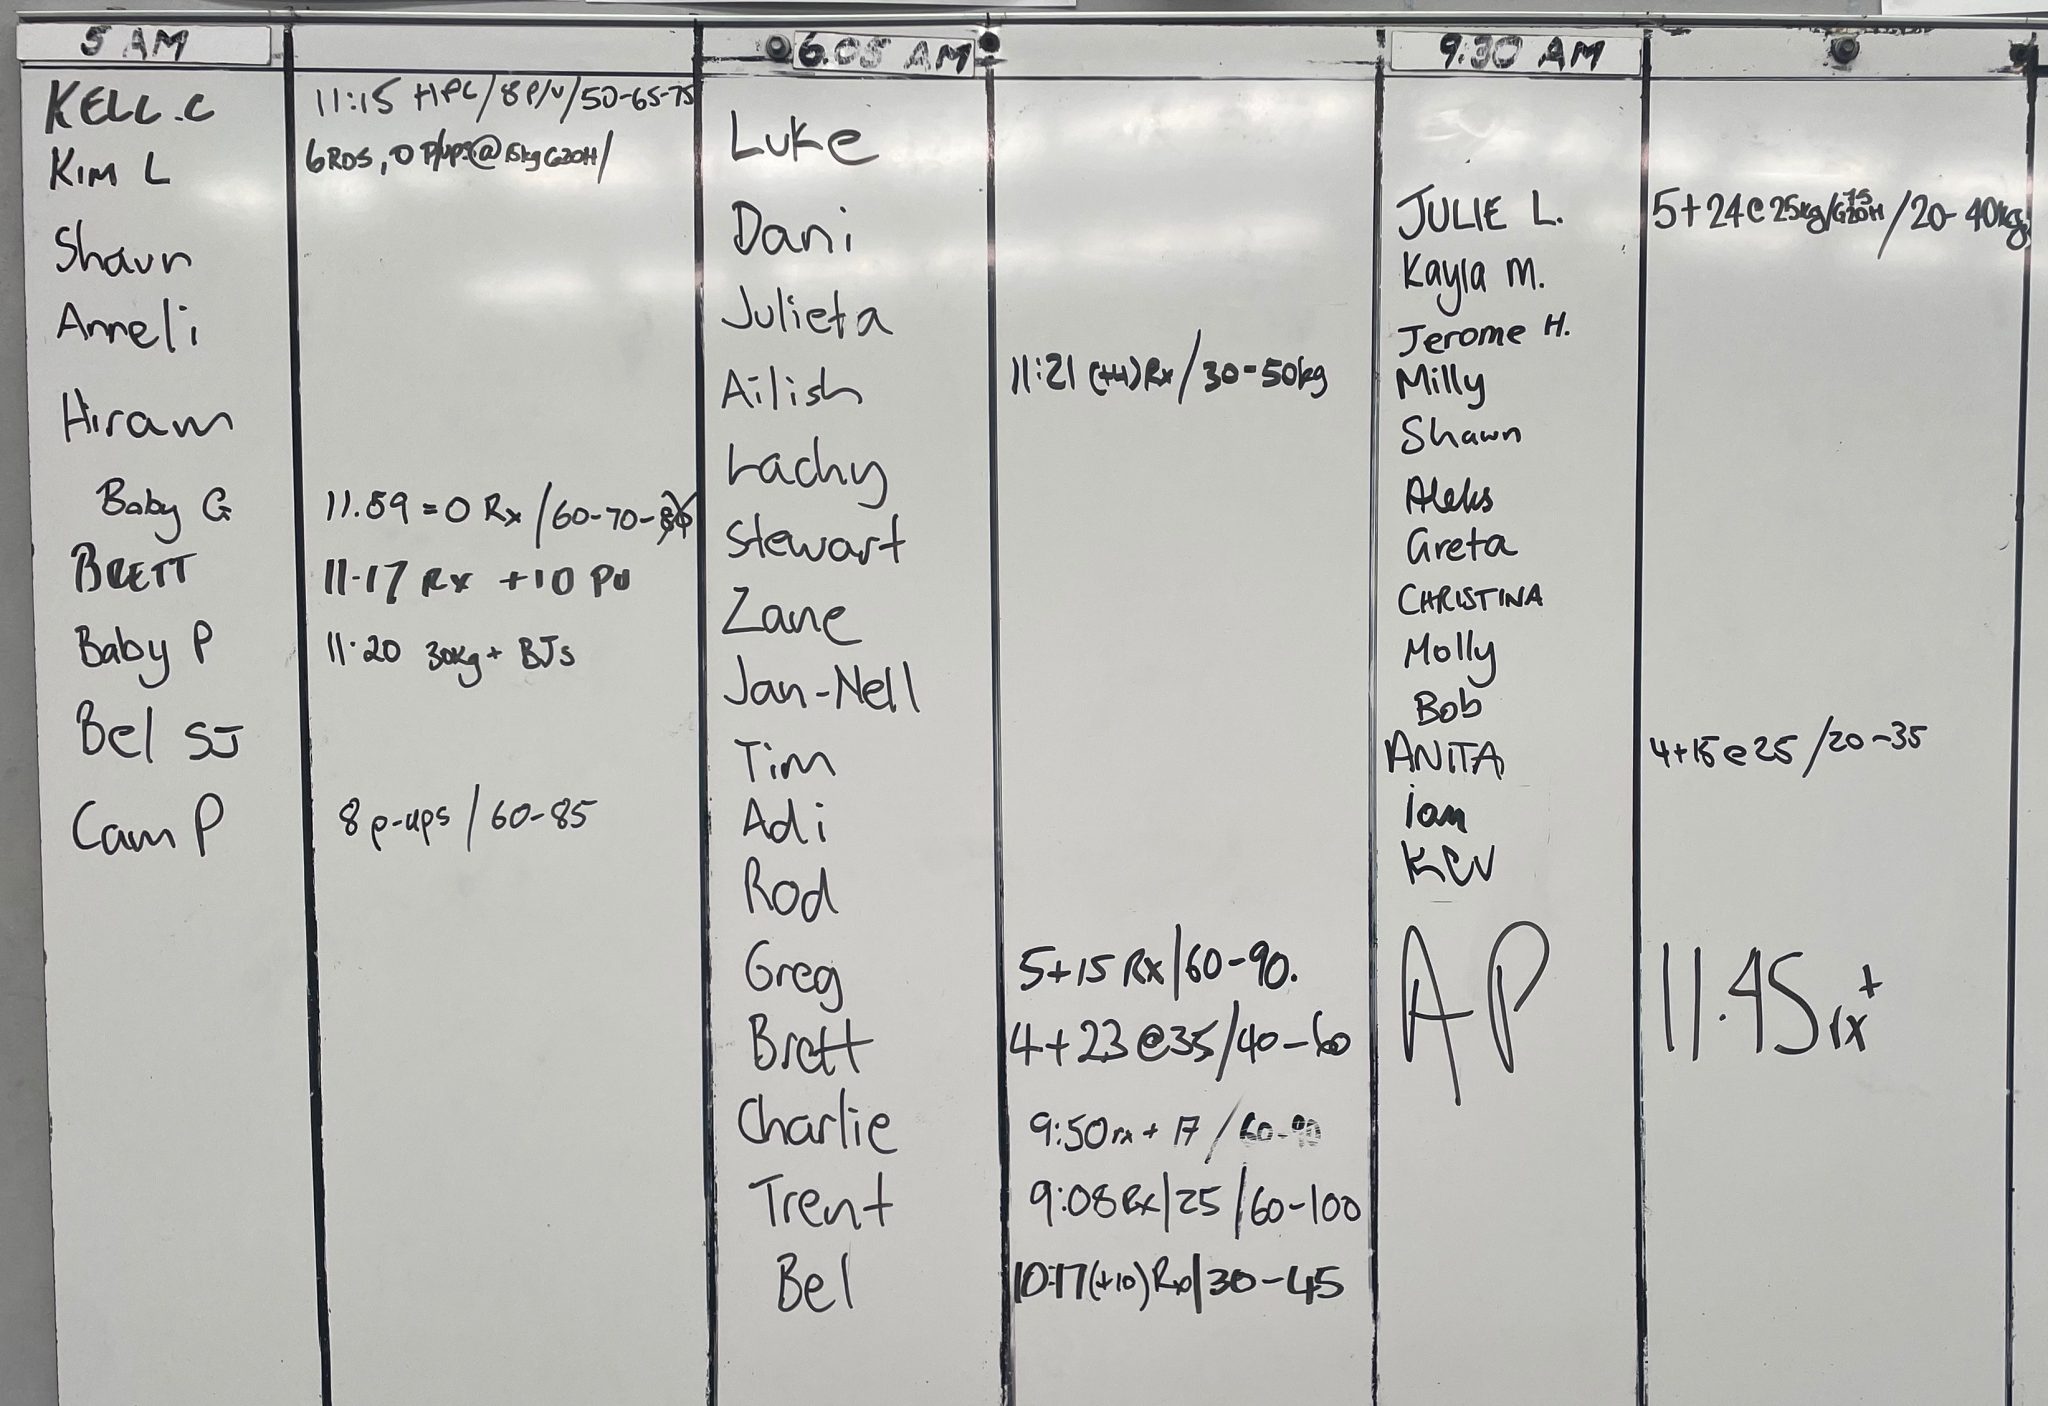 5 AM
KELL.C 11:15 HPC/8 P/U/50-65-75
KIM L 6 RDS, 0 P/ups @ 15kg G20H/
Shaun
Anneli
Hiram
Baby G 11.59 = 0 Rx /60-70-
BRETT 11.17 Rx +10 PU
Baby P 11.20 30kg + BJs
Bel SJ
Cam P 8 p-ups / 60-85
6.05 AM
Luke
Dani
Julieta
Ailish 11:21 (+4) Rx / 30-50kg
Lachy
Stewart
Zane
Jan-Nell
Tim
Adi
Rod
Greg 5+15 RX/60-90.
Brett 4+23 @35/40-60
Charlie 9:50 rx + 17 / 60-90
Trent 9:08 Rx/25 /60-100
Bel 10:17 (+10) Rx/30-45
9:30 AM
JULIE L. 5+24 @ 25kg/G20H 75 /20-40kg
Kayla M.
Jerome H.
Milly
Shawn
Aleks
Greta
CHRISTINA
Molly
Bob
ANITA 4+15 @ 25 /20-35
Ian
KCV
AP 11.45 rx+